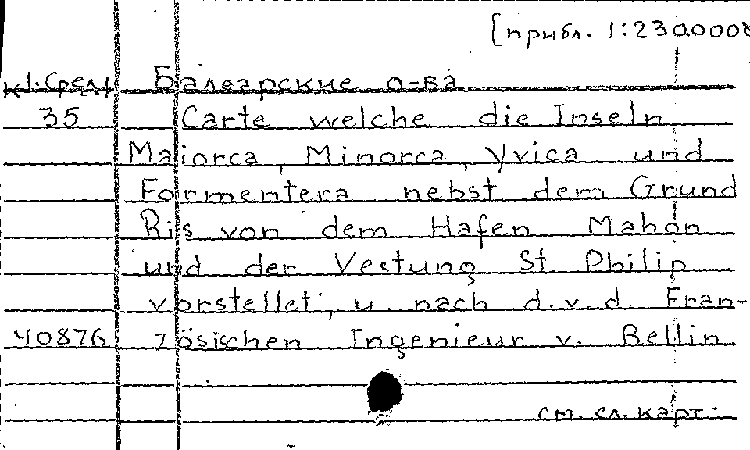 [прибл. 1:2300000
К 1-Сред Балеарские о-ва
35 Carte welche die Inseln
Maiorca, Minorca, Yvica und
Formentera nebst dem Grund
Ris von dem Hafen Mahon
und der Vestung St Philip
vorstellet, u nach d. v. d. Fran-
40876 zösischen Ingenieur v. Bellin
см. сл. карт.